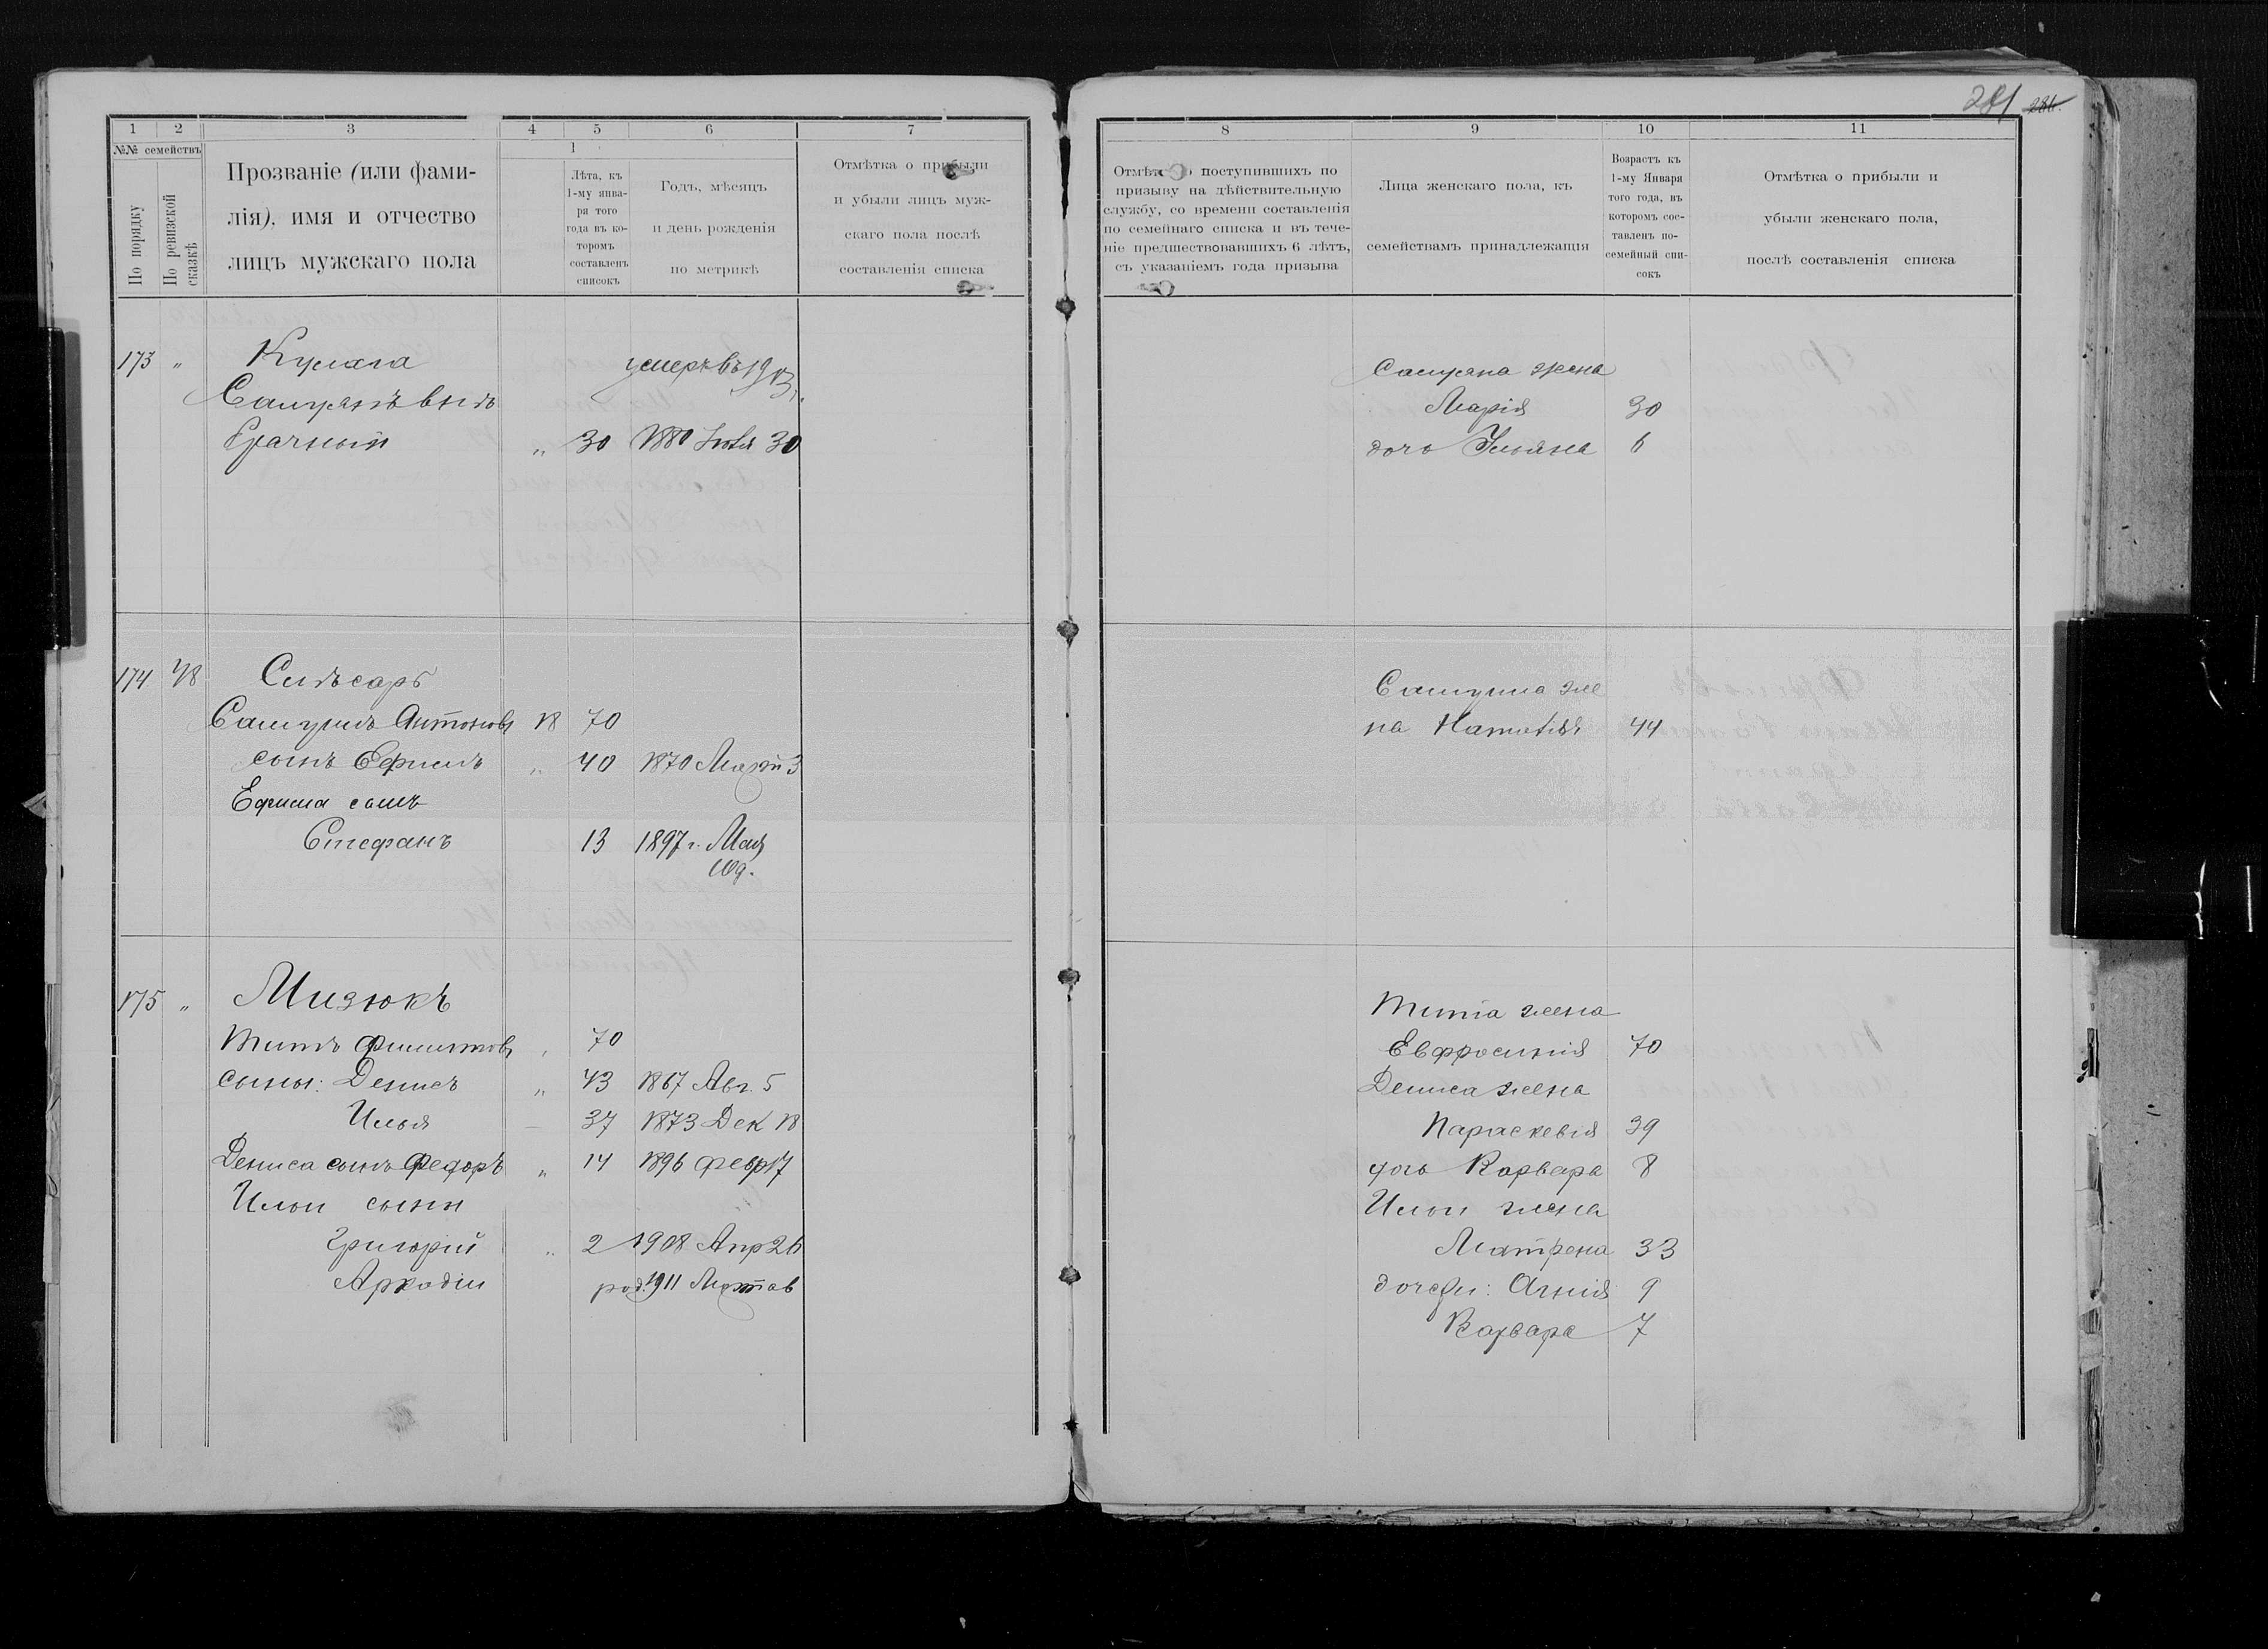 281 286.
1 2 3 4 5 6 7
№№ семействъ
По порядку
По ревизской сказкѣ
Прозваніе (или фами-
лія), имя и отчество
лицъ мужскаго пола
1
Лѣта, къ
1-му янва-
ря того
года въ ко-
торомъ
составленъ
списокъ
Годъ, мѣсяцъ
и день рожденія
по метрикѣ
Отмѣтка о прибыли
и убыли лицъ муж-
скаго пола послѣ
составленія списка
173 " Кулага умеръ въ 1913 г.
Сампсонъ внѣ
брачный " 30 1880 Іюля 30
174 48 Слѣсарь
Самуилъ Антоновъ 18 70
сынъ Ефимъ " 40 1870 Март 3
Ефима сынъ
Стефанъ 13 1897 г. Мая
10 д.
175 " Мизюкъ
Титъ Филиповъ " 70
сыны: Денисъ " 43 1867 Авг. 5
Илья 37 1873 Дек 18
Дениса сынъ Федоръ " 14 1896 Февр 17
Ильи сыны
Григорій " 2 1908 Апр 26
Аркадій род. 1911 Март 26
8 9 10 11
Отмѣтка о поступившихъ по
призыву на дѣйствительную
службу, со времени составленія
по семейнаго списка и въ тече-
ніе предшествовавшихъ 6 лѣтъ,
съ указаніемъ года призыва
Лица женскаго пола, къ
семействамъ принадлежащія
Возрастъ къ
1-му Января
того года, въ
которомъ сос-
тавленъ по-
семейный спи-
сокъ
Отмѣтка о прибыли и
убыли женскаго пола,
послѣ составленія списка
жена
Марія 30
дочь Ульяна 6
Самуила же
на Наталія 44
Тита жена
Евфросинія 70
Дениса жена
Параскевія 39
дочь Варвара 8
Ильи жена
Матрена 33
дочери: Агнія 9
Варвара 7